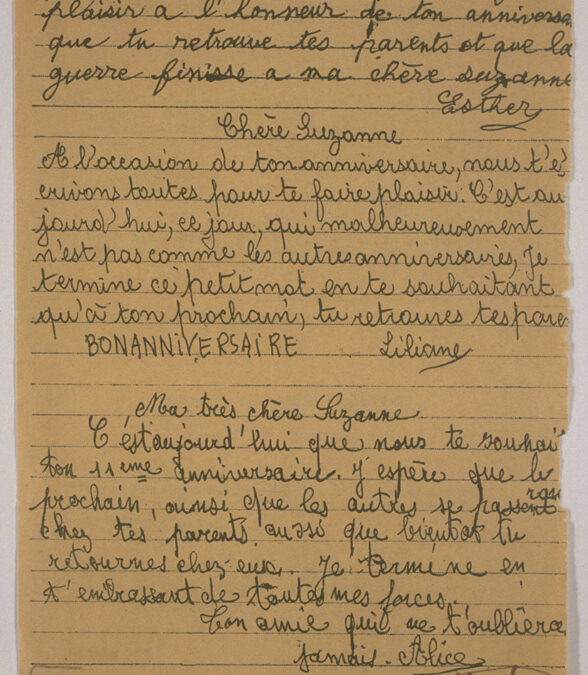 plaisir a l'honneur de ton anniversa
que tu retrouve tes parents et que la
guerre finisse a ma chère suzanne
Esther
Chère Suzanne
A l'occasion de ton anniversaire, nous t'é
crivons toutes pour te faire plaisir. C'est au
jourd'hui, ce jour, qui malheureusement
n'est pas comme les autres anniversaires, Je
termine ce petit mot en te souhaitant
qu'à ton prochain, tu retrouves tes pare
BON ANNIVERSAIRE Liliane
Ma très chère Suzanne
C'est aujourd'hui que nous te souhai
ton 11ème anniversaire. J'espère que le
prochain, ainsi que les autres se passeront
chez tes parents aussi que bientot tu
retournes chez eux. Je termine en
t'embrassant de toutes mes forces.
Ton amie qui ne t'oubliera
jamais. Alice